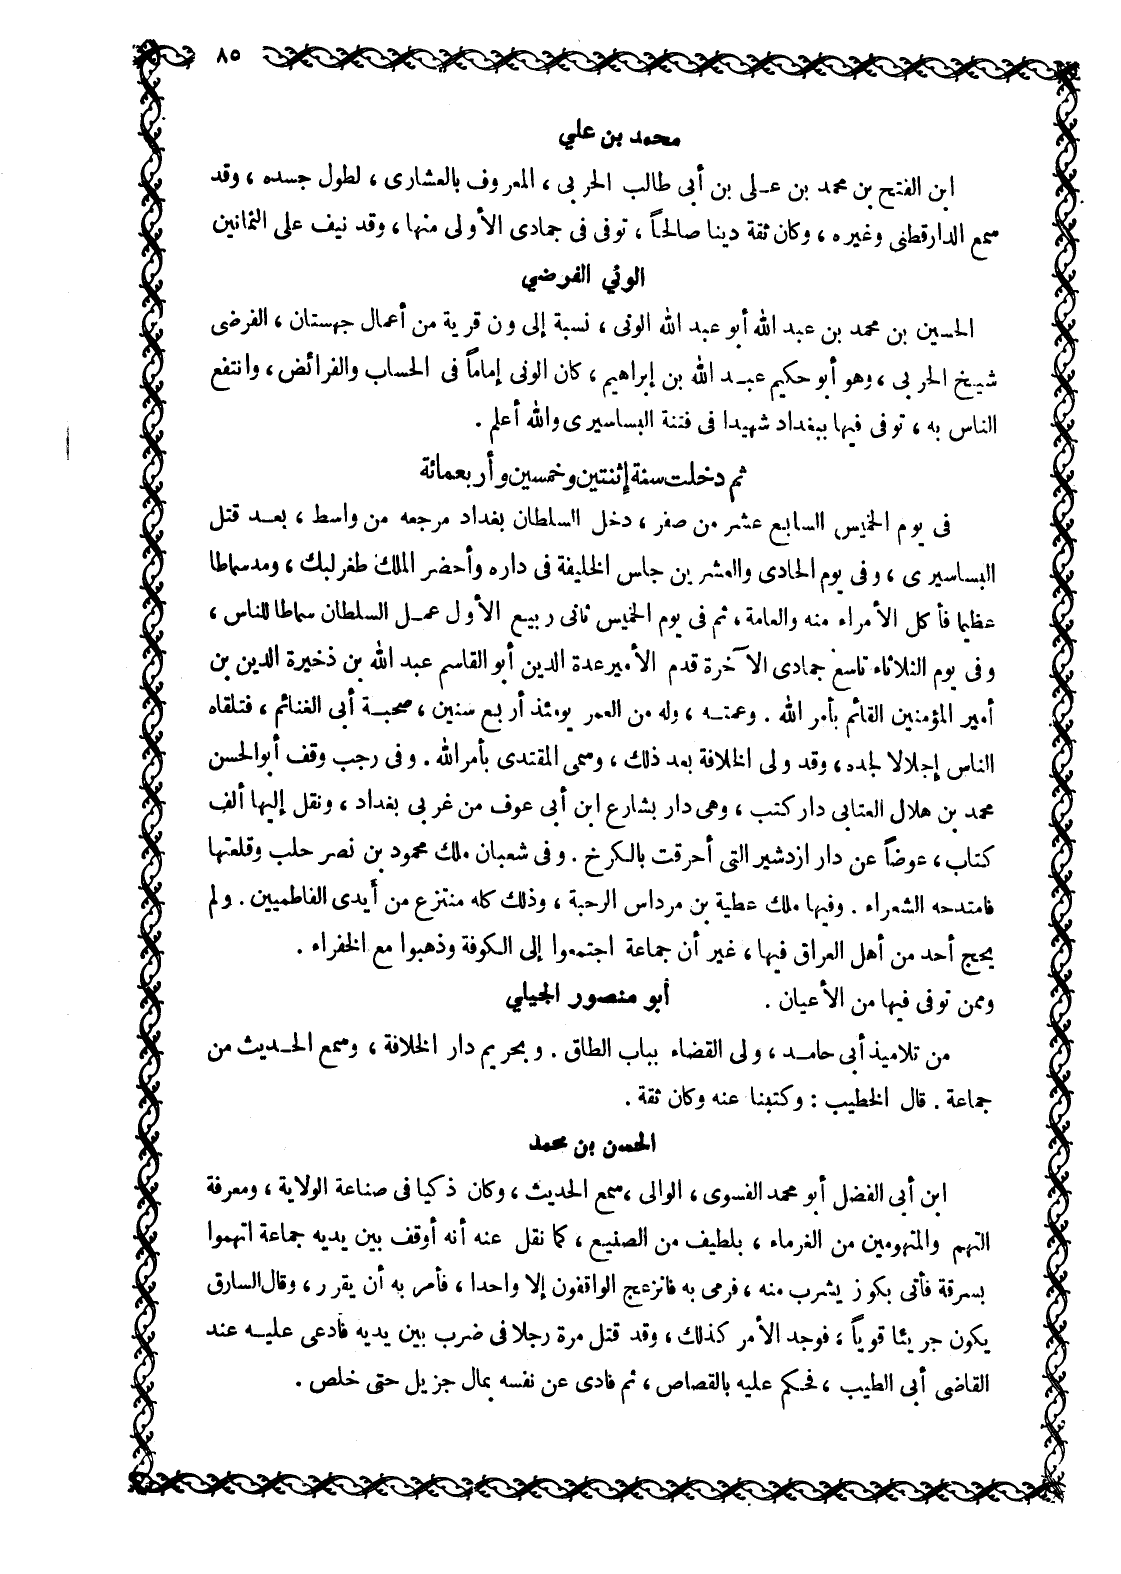 ٨٥
محمد بن علي
ابن الفتح بن محمد بن عـلى بن أبى طالب الحربى ، المعروف بالعشارى ، لطول جسده ، وقد
سمع الدارقطنى وغيره ، وكان ثقة دينا صالحاً ، توفى فى جمادى الأولى منها ، وقد نيف على الثمانين
الوني الفرضي
الحسين بن محمد بن عبد الله أبو عبد الله الونى ، نسبة إلى ون قرية من أعمال جهستان ، الفرضى
شيخ الحربى ، وهو أبو حكيم عبـد الله بن إبراهيم ، كان الونى إماماً فى الحساب والفرائض ، وانتفع
الناس به ، توفى فيها ببغداد شهيدا فى فتنة البساسيرى والله أعلم .
ثم دخلت سنة إثنتين وخمسين وأربعمائة
فى يوم الخميس السابع عشر من صفر ، دخل السلطان بغداد مرجعه من واسط ، بعـد قتل
البساسيرى ، وفى يوم الحادى والعشرين جلس الخليفة فى داره وأحضر الملك طغرلبك ، ومد سماطا
عظيما فأكل الأمراء منه والعامة ، ثم فى يوم الخميس ثانى ربيع الأول عمـل السلطان سماطا للناس ،
وفى يوم الثلاثاء تاسع جمادى الآخرة قدم الأمير عدة الدين أبو القاسم عبد الله بن ذخيرة الدين بن
أمير المؤمنين القائم بأمر الله . وعمتـه ، وله من العمر يومئذ أربع سنين ، صحبـة أبى الغنائم ، فتلقاه
الناس إجلالا لجده ، وقد ولى الخلافة بعد ذلك ، وسمى المقتدى بأمر الله . وفى رجب وقف أبو الحسن
محمد بن هلال العتابى دار كتب ، وهى دار بشارع ابن أبى عوف من غربى بغداد ، ونقل إليها ألف
كتاب ، عوضاً عن دار ازدشير التى أحرقت بالكرخ . وفى شعبان ملك محمود بن نصر حلب وقلعتها
فامتدحه الشعراء . وفيها ملك عطية بن مرداس الرحبة ، وذلك كله منتزع من أيدى الفاطميين . ولم
يحج أحد من أهل العراق فيها ، غير أن جماعة اجتمعوا إلى الكوفة وذهبوا مع الخفراء .
وممن توفى فيها من الأعيان . أبو منصور الجيلي
من تلاميذ أبى حامـد ، ولى القضاء بباب الطاق . وبحريم دار الخلافة ، وسمع الحـديث من
جماعة . قال الخطيب : وكتبنا عنه وكان ثقة .
الحسن بن محمد
ابن أبى الفضل أبو محمد الفسوى ، الوالى ، سمع الحديث ، وكان ذكيا فى صناعة الولاية ، ومعرفة
التهم والمتهومين من الغرماء ، بلطيف من الصنيع ، كما نقل عنه أنه أوقف بين يديه جماعة اتهموا
بسرقة فأتى بكوز يشرب منه ، فرمى به فانزعج الواقفون إلا واحدا ، فأمر به أن يقرر ، وقال السارق
يكون جريئا قوياً ، فوجد الأمر كذلك ، وقد قتل مرة رجلا فى ضرب بين يديه فادعى عليـه عند
القاضى أبى الطيب ، فحكم عليه بالقصاص ، ثم فادى عن نفسه بمال جزيل حتى خلص .